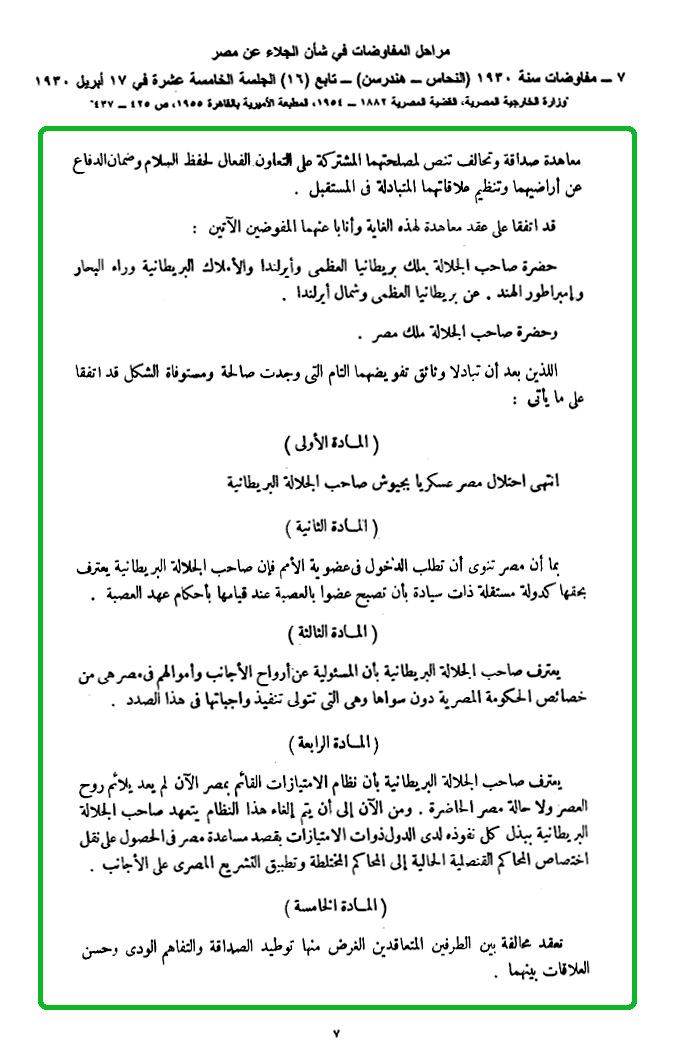 مراحل المفاوضات في شأن الجلاء عن مصر
٧ ــ مفاوضات سنة ١٩٣٠ (النحاس ــ هندرسن) ــ تابع (١٦) الجلسة الخامسة عشرة في ١٧ أبريل ١٩٣٠
"وزارة الخارجية المصرية، القضية المصرية ١٨٨٢ ــ ١٩٥٤، المطبعة الأميرية بالقاهرة ١٩٥٥، ص ٤٢٥ ــ ٤٣٧"
معاهدة صداقة وتحالف تنص لمصلحتهما المشتركة على التعاون الفعال لحفظ السلام وضمان الدفاع
عن أراضيهما وتنظيم علاقاتهما المتبادلة فى المستقبل .
قد اتفقا على عقد معاهدة لهذه الغاية وأنابا عنهما المفوضين الآتين :
حضرة صاحب الجلالة ملك بريطانيا العظمى وأيرلندا والأملاك البريطانية وراء البحار
وإمبراطور الهند . عن بريطانيا العظمى وشمال أيرلندا .
وحضرة صاحب الجلالة ملك مصر .
اللذين بعد أن تبادلا وثائق تفويضهما التام التى وجدت صالحة ومستوفاة الشكل قد اتفقا
على ما يأتى :
( المادة الأولى )
انتهى احتلال مصر عسكريا بجيوش صاحب الجلالة البريطانية
( المادة الثانية )
بما أن مصر تنوى أن تطلب الدخول فى عضوية الأمم فإن صاحب الجلالة البريطانية يعترف
بحقها كدولة مستقلة ذات سيادة بأن تصبح عضوا بالعصبة عند قيامها بأحكام عهد العصبة .
( المادة الثالثة )
يعترف صاحب الجلالة البريطانية بأن المسئولية عن أرواح الأجانب وأموالهم فى مصر هى من
خصائص الحكومة المصرية دون سواها وهى التى تتولى تنفيذ واجباتها فى هذا الصدد .
( المادة الرابعة )
يعترف صاحب الجلالة البريطانية بأن نظام الامتيازات القائم بمصر الآن لم يعد يلائم روح
العصر ولا حالة مصر الحاضرة . ومن الآن إلى أن يتم إلغاء هذا النظام يتعهد صاحب الجلالة
البريطانية ببذل كل نفوذه لدى الدول ذوات الامتيازات بقصد مساعدة مصر فى الحصول على نقل
اختصاص المحاكم القنصلية الحالية إلى المحاكم المختلطة وتطبيق التشريع المصرى على الأجانب .
( المادة الخامسة )
تعقد محالفة بين الطرفين المتعاقدين الغرض منها توطيد الصداقة والتفاهم الودى وحسن
العلاقات بينهما .
٧